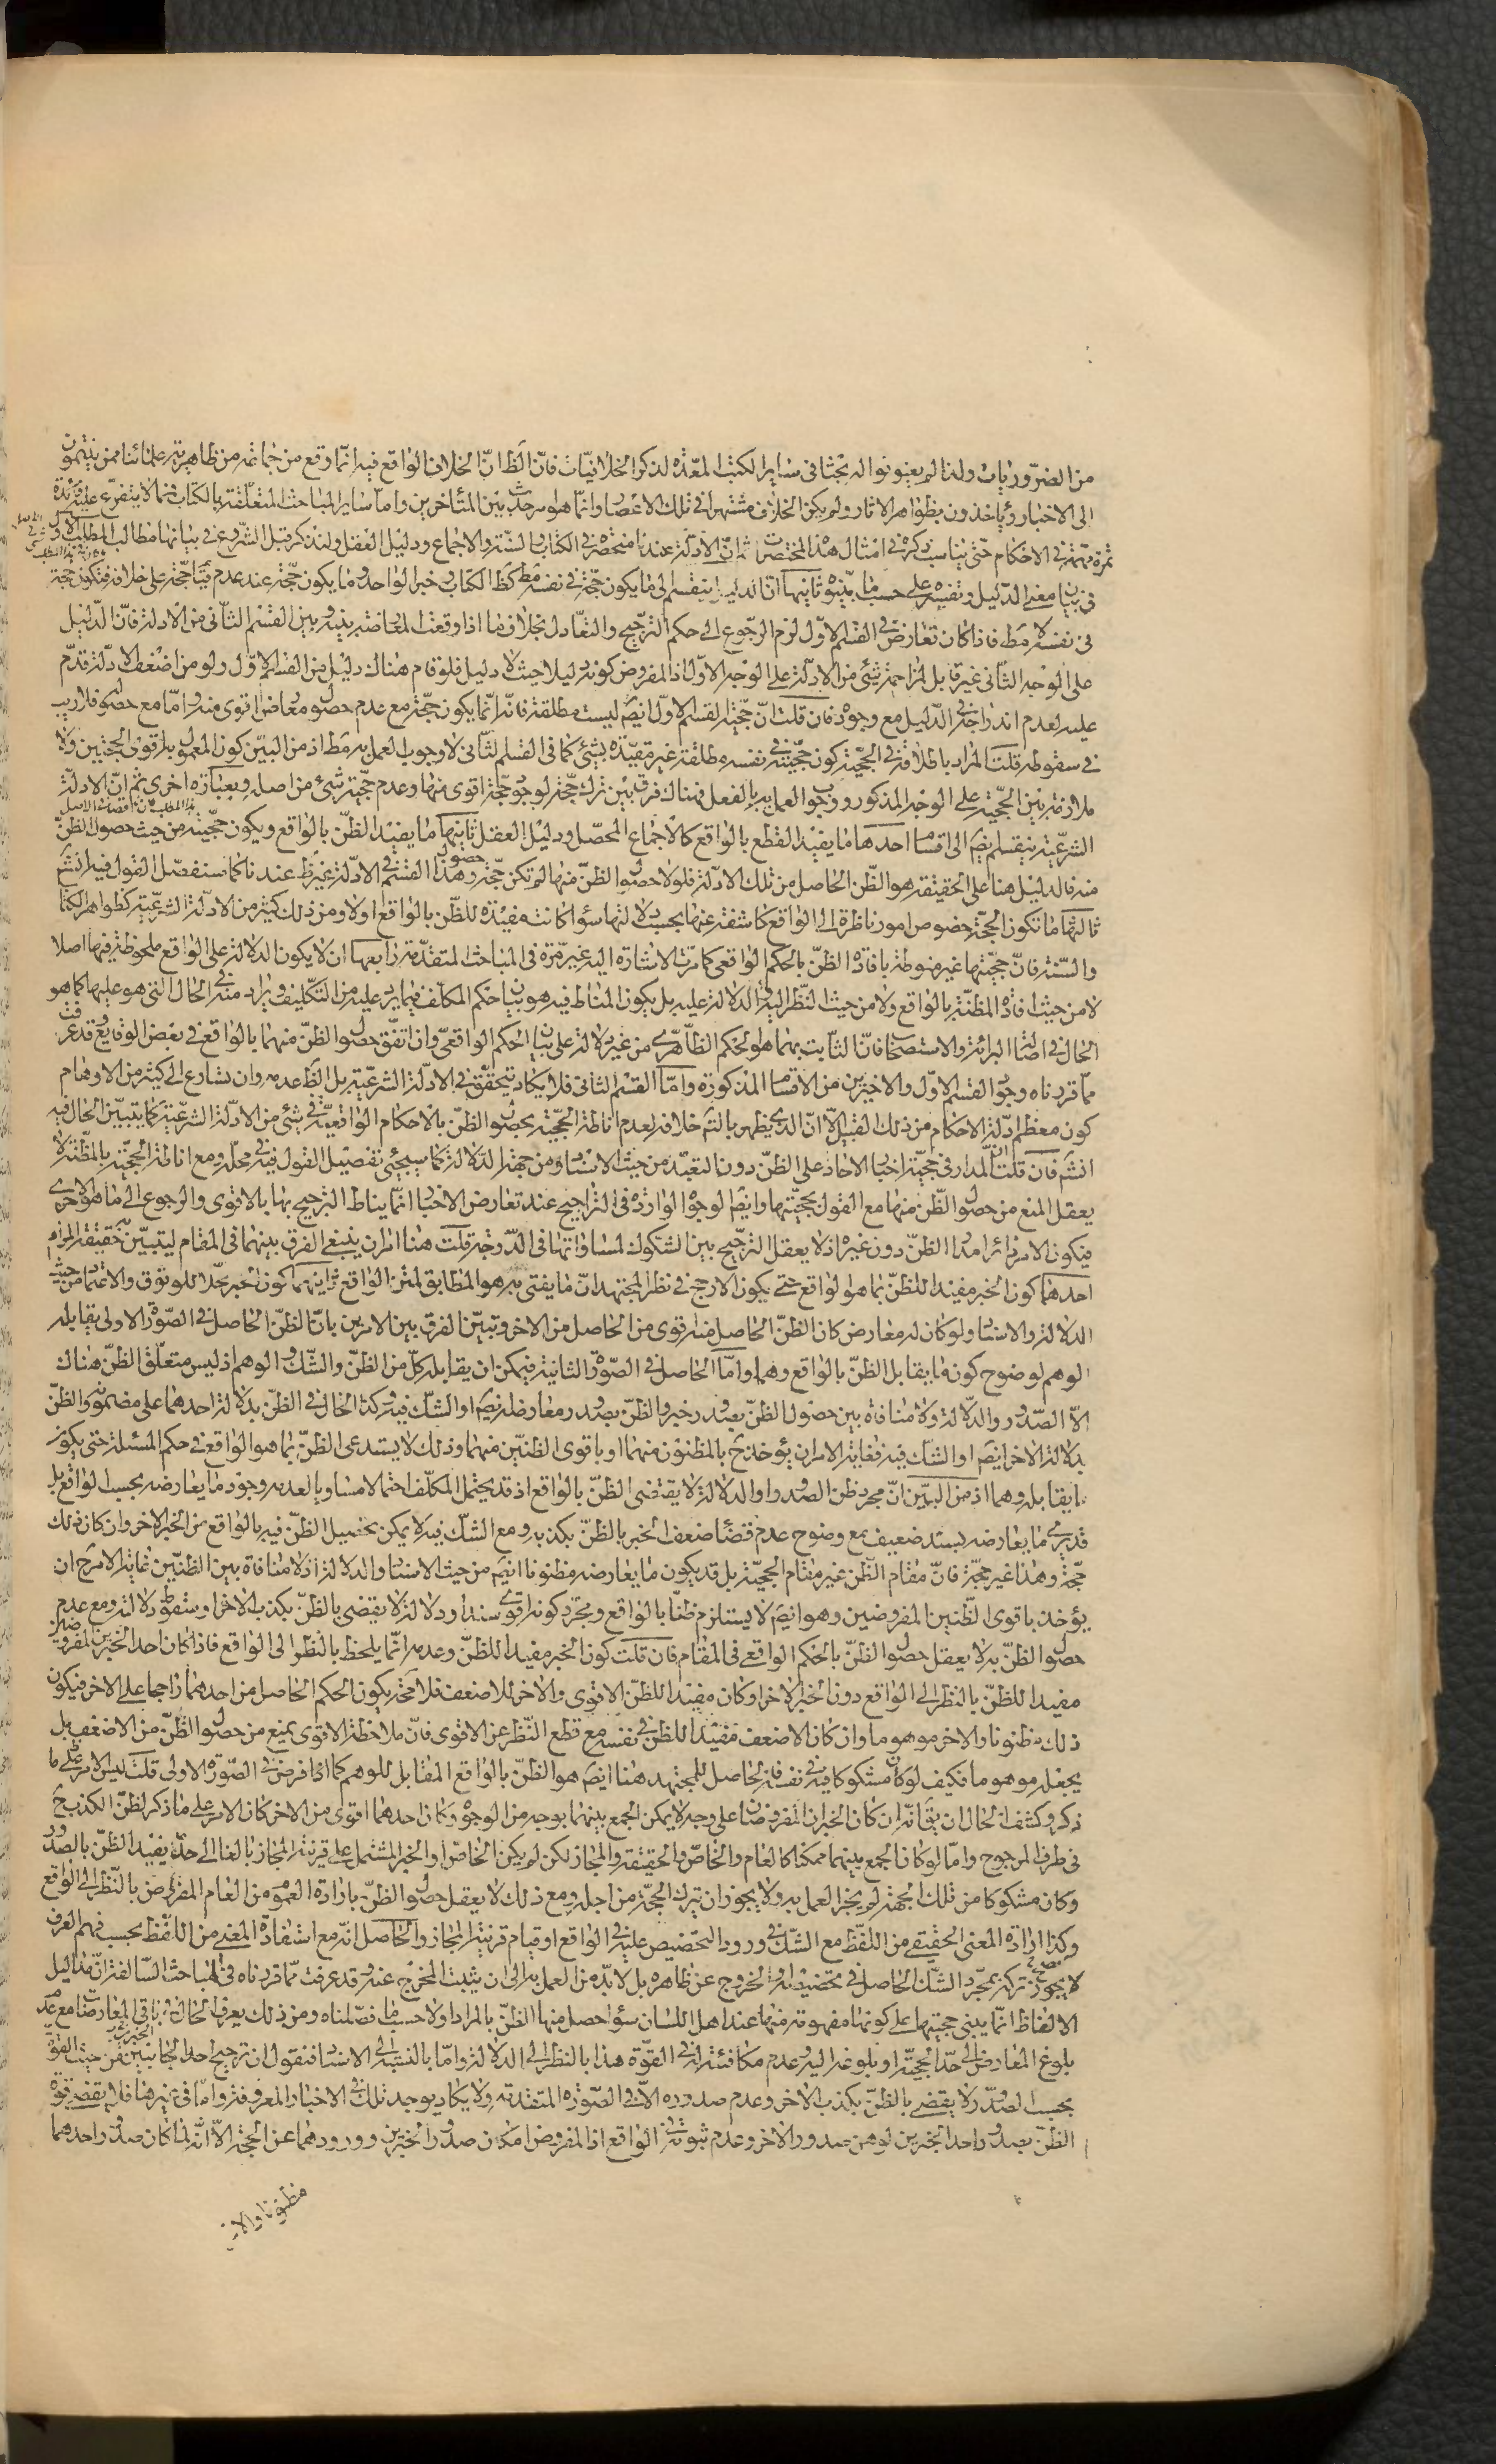 من الضروريات ولذا لم يعنونوا له بحثا فى ساير الكتب المعدة لذكر الخلافيات فان الظ ان الخلاف الواقع فيه انما وقع من جماعة من ظاهرية علمائنا ممن ينتمون
الى الاخبار وياخذون بظواهر الاثار ولم يكن الخلاف مشتهرا فى تلك الاعصار وانما هو امر حدث بين المتأخرين واما ساير المباحث المتعلقة بالكتاب فمما لا يتفرع عليه فائدة
ثمرة مهمة فى الاحكام حتى يناسب ذكره فى امثال هذا المختصرات ثم ان الادلة عندنا منحصرة فى الكتاب والسنة والاجماع ودليل العقل ولنذكر قبل الشروع فى بيانها مطالب المطلب الاول
فى بيان معنى الدليل وتقسيمه على حسب ما بينوه ثانيها ان الدليل ينقسم الى ما يكون حجة فى نفسه مط كظ الكتاب وخبر الواحد وما يكون حجة عند عدم قيام حجة على خلافه فيكون حجة
فى نفسه لا مط فاذا كان تعارض فى القسم الاول لزم الرجوع الى حكم الترجيح والتعادل بخلاف ما اذا وقعت المعارضة بينه وبين القسم الثانى من الادلة فان الدليل
على الوجه الثانى غير قابل لمزاحمة شئ من الادلة على الوجه الاول اذ المفروض كونه دليلا حيث لا دليل فلو قام هناك دليل من القسم الاول ولو من اضعف الادلة قدم
عليه لعدم اندراجه فى الدليل مع وجوده فان قلت ان حجية القسم الاول ايضم ليست مطلقة فانه انما يكون حجة مع عدم حصول معارض اقوى منه واما مع حصوله فلا ريب
فى سقوطه قلت المراد باطلاقه فى الحجية كون حجيته فى نفسه مطلقة غير مقيدة بشئ كما فى القسم الثانى لا وجوب العمل به مط اذ من البين كون المعمول به اقوى الحجتين ولا
ملازمة بين الحجية على الوجه المذكور ووجوب العمل به بالفعل فهناك فرق بين ترك حجة لوجود حجة اقوى منها وعدم حجية شئ من اصله وبعبارة اخرى ثم ان الادلة
الشرعية ينقسم ايضم الى اقسام احدها ما يفيد القطع بالواقع كالاجماع المحصل ودليل العقل ثانيها ما يفيد الظن بالواقع ويكون حجيته من حيث حصول الظن
منه فالدليل هنا على الحقيقة هو الظن الحاصل من تلك الادلة فلولا حصول الظن منها لم تكن حجة وحصول هذا القسم فى الادلة غير ظ عندنا كما سنفصل القول فيه انشم
ثالثها ما تكون الحجة خصوص امور ناظرة الى الواقع كاشفة عنها بحسب دلالتها سواء كانت مفيدة للظن بالواقع اولا ومن ذلك كثير من الادلة الشرعية كظواهر الكتاب
والسنة فان حجيتها غير منوطة بافادة الظن بالحكم الواقعى كما مرت الاشارة اليه غير مرة فى المباحث المتقدمة رابعها ان لا يكون الدلالة على الواقع ملحوظة فيها اصلا
لا من حيث افادة المظنة بالواقع ولا من حيث النظر اليه والدلالة عليه بل يكون المناط فيه هو بيان حكم المكلف فيما يرد عليه من التكليف ويراد منه فى الحال التى هو عليها كما هو
الحال فى اصالة البرائة والاستصحاب فان الثابت بهما هو الحكم الظاهرى من غير دلالة على بيان الحكم الواقعى وان اتفق حصول الظن منهما بالواقع فى بعض الوقايع وقد عرفت
مما قررناه وجود القسم الاول والاخيرين من الاقسام المذكورة واما القسم الثانى فلا يكاد يتحقق فى الادلة الشرعية بل الظ عدمه وان تسارع الى كثير من الاوهام
كون معظم ادلة الاحكام من ذلك القبيل الا ان الذى يظهر بالتم خلافه لعدم اناطة الحجية بحصول الظن بالاحكام الواقعية فى شئ من الادلة الشرعية كما يتبين الحال فيه
انشم فان قلت ان المدار فى حجية اخبار الاحاد على الظن دون التعبد من حيث الاسناد ومن جهة الدلالة كما سيجئ تفصيل القول فيه فى محله ومع اناطة الحجية بالمظنة لا
يعقل المنع من حصول الظن منها مع القول بحجيتها وايضم الوجوه الواردة فى التراجيح عند تعارض الاخبار انما يناط الترجيح بها بالاقوى والرجوع الى ما هو الاحرى
فيكون الامر دائرا مدار الظن دون غيره اذ لا يعقل الترجيح بين الشكوك لمساواتها فى الدرجة قلت هنا امران ينبغى الفرق بينهما فى المقام ليتبين حقيقة المرام
احدهما كون الخبر مفيدا للظن بما هو الواقع حتى يكون الارجح فى نظر المجتهد ان ما يفتى به هو المطابق لمتن الواقع ثانيهما كون الخبر محلا للوثوق والاعتماد من حيث
الدلالة والاسناد ولو كان له معارض كان الظن الحاصل منه اقوى من الحاصل من الاخر وتبين الفرق بين الامرين بان الظن الحاصل فى الصورة الاولى يقابله
الوهم لوضوح كون ما يقابل الظن بالواقع وهما واما الحاصل فى الصورة الثانية فيمكن ان يقابله كل من الظن والشك والوهم اذ ليس متعلق الظن هناك
الا الصدور والدلالة ولا منافاة بين حصول الظن بصدور خبر والظن بصدور معارضه ايضم او الشك فيه وكذا الحال فى الظن بدلالة احدهما على مضمونه والظن
بدلالة الاخر ايضم او الشك فيه فغاية الامر ان يؤخذ ح بالمظنون منهما او باقوى الظنين منهما وذلك لا يستدعى الظن بما هو الواقع فى حكم المسئلة حتى يكون
ما يقابله وهما اذ من البين ان مجرد ظن الصدور او الدلالة لا يقتضى الظن بالواقع اذ قد يحتمل المكلف احتمالا مساويا لعدمه وجود ما يعارضه بحسب الواقع بل
قد يرى ما يعارضه بسند ضعيف مع وضوح عدم قضاء ضعف الخبر بالظن بكذبه ومع الشك فيه لا يمكن تحصيل الظن فيه بالواقع من الخبر الاخر وان كان ذلك
حجة وهذا غير حجة فان مقام الظن غير مقام الحجية بل قد يكون ما يعارضه مظنونا ايضم من حيث الاسناد والدلالة اذ لا منافاة بين الظنين غاية الامر ح ان
يؤخذ باقوى الظنين المفروضين وهو ايضم لا يستلزم ظنا بالواقع ومجرد كونه اقوى سندا او دلالة لا يقضى بالظن بكذب الاخر او سقوط دلالته ومع عدم
حصول الظن به لا يعقل حصول الظن بالحكم الواقعى فى المقام فان قلت كون الخبر مفيدا للظن وعدمه انما يلحظ بالنظر الى الواقع فاذا كان احد الخبرين المفروضين
مفيدا للظن بالنظر الى الواقع دون الخبر الاخر او كان مفيدا للظن الاقوى والاخر للاضعف فلا محة يكون الحكم الحاصل من احدهما راجحا على الاخر فيكون
ذلك مظنونا والاخر موهوما وان كان الاضعف مفيدا للظن فى نفسه مع قطع النظر عن الاقوى فان ملاحظة الاقوى يمنع من حصول الظن من الاضعف بل
يجعله موهوما فكيف لو كان مشكوكا فيه فى نفسه فالحاصل للمجتهد هنا ايضم هو الظن بالواقع المقابل للوهم كما اذا فرض فى الصورة الاولى قلت ليس الامر على ما
ذكر وكشف الحال ان يق انه ان كان الخبران المفروضان على وجه لا يمكن الجمع بينهما بوجه من الوجوه وكان احدهما اقوى من الاخر كان الامر على ما ذكر لظن الكذب ح
فى طرف المرجوح واما لو كان الجمع بينهما ممكنا كالعام والخاص والحقيقة والمجاز لكن لم يكن الخاص او الخبر المشتمل على قرينة المجاز بالغا الى حد يفيد الظن بالصدور
وكان مشكوكا من تلك الجهة لم يجز العمل به ولا يجوز ان يترك الحجة من اجله ومع ذلك لا يعقل حصول الظن بارادة العموم من العام المفروض بالنظر الى الواقع
وكذا ارادة المعنى الحقيقى من اللفظ مع الشك فى ورود التخصيص عليه فى الواقع او قيام قرينة المجاز والحاصل انه مع استفادة المعنى من اللفظ بحسب فهم العرف
لا يجوز تركه بمجرد الشك الحاصل فى تخصيصه او الخروج عن ظاهره بل لا بد من العمل به الى ان يثبت المخرج عنه وقد عرفت مما قررناه فى المباحث السالفة ان مداليل
الالفاظ انما يبنى حجيتها على كونها مفهومة منها عند اهل اللسان سواء حصل منها الظن بالمراد اولا حسب ما فصلناه ومن ذلك يعرف الحال فى باقى المعارضات مع عدم
بلوغ المعارض الى حد الحجية او بلوغه اليه وعدم مكافئته له فى القوة هذا بالنظر الى الدلالة واما بالنسبة الى الاسناد فنقول ان ترجيح احد الجانبين من حيث القوة
بحسب الصدور لا يقضى بالظن بكذب الاخر وعدم صدوره الا فى الصورة المتقدمة ولا يكاد يوجد تلك فى الاخبار المعروفة واما فى غيرها فلا يقضى قوة
الظن بصدور احد الخبرين لوهن صدور الاخر وعدم ثبوته فى الواقع اذ المفروض امكان صدور الخبرين وورودهما عن الحجة الا انه لما كان صدور احدهما
مظنونا والاخر